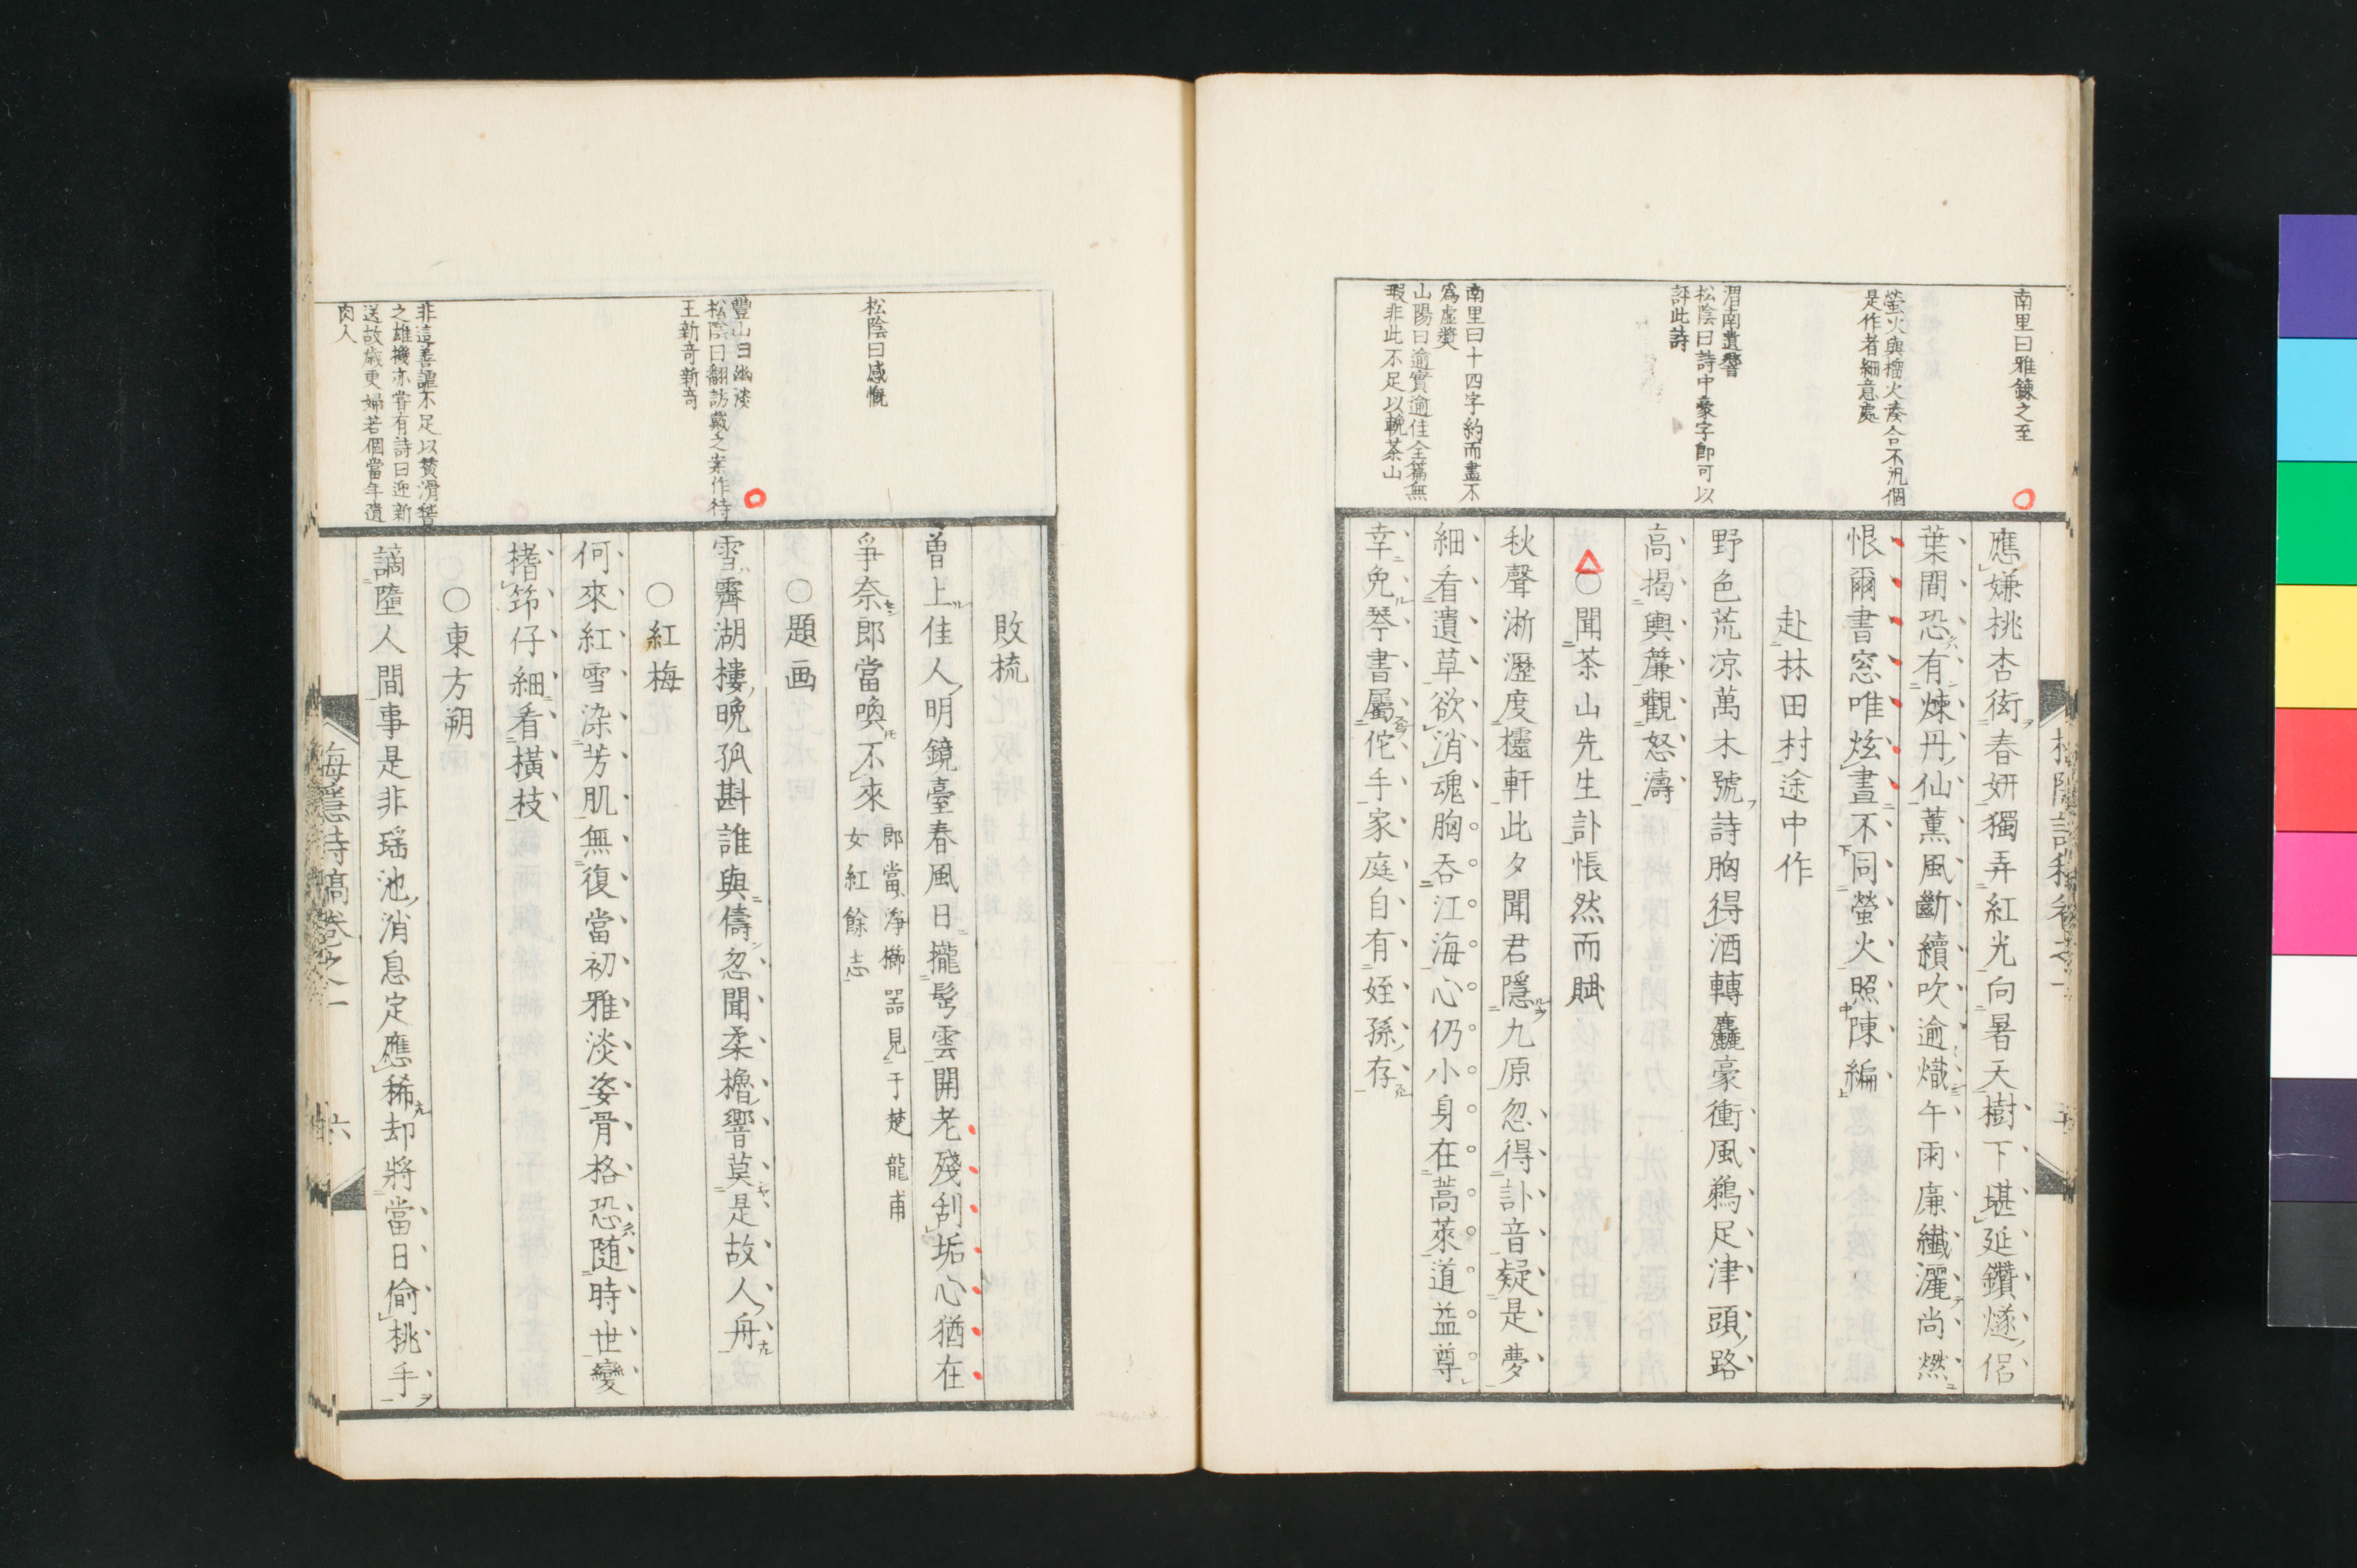 南里曰雅鍊之至
螢火與榴火湊合不汎個
是作者細意處
渭南遺響
松陰曰詩中豪字即可以
評此詩
南里曰十四字約而盡不
為虛奬
山陽曰逾實逾佳全篇無
瑕非此不足以輓茶山
應嫌桃杏衒春妍獨弄紅光向暑天樹下堪延鑽燧侶
葉間恐有煉丹仙薰風斷續吹逾熾午雨廉纖灑尚燃
恨爾書窓唯炫晝不同螢火照陳編
赴林田村途中作
野色荒凉萬木號詩胸得酒轉麤豪衝風鵜足津頭路
高揭輿簾觀怒濤
○聞茶山先生訃悵然而賦
秋聲淅瀝度櫺軒此夕聞君隱九原忽得訃音疑是夢
細看遺草欲消魂胸吞江海心仍小身在蒿萊道益尊
幸免琴書屬佗手家庭自有姪孫存
松陰曰感慨
豐山曰幽淡
松陰曰翻訪戴之案作待
王新奇新奇
非這善謔不足以贊滑稽
之雄機亦嘗有詩曰迎新
送故歲更婦若個當年遺
肉人
敗梳
曾上佳人明鏡臺春風日日攏髩雲開老殘刮垢心猶在
爭奈郎當喚不來
郎當淨櫛器見于楚龍甫
女紅餘志
○題画
雪霽湖樓晩孤斟誰與儔忽聞柔櫓響莫是故人舟
○紅梅
何來紅雪染芳肌無復當初雅淡姿骨格恐随時世變
搘筇仔細看橫枝
○東方朔
謫墮人間事是非瑶池消息定應稀却將當日偷桃手
梅隱詩稿卷之一
六